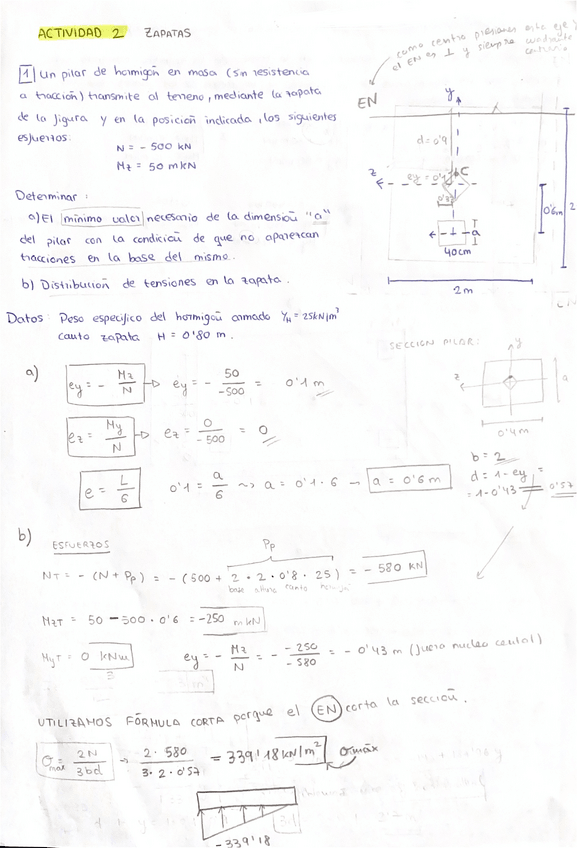 ACTIVIDAD 2 ZAPATAS
como centro presiones esta eje y
el EN es ⊥ y siempre cuadrante
contrario
1 Un pilar de hormigón en masa (sin resistencia
a tracción) transmite al terreno, mediante la zapata
de la figura y en la posición indicada, los siguientes
esfuerzos:
N = - 500 kN
Mz = 50 mkN
EN
y
d = 0'9
z
ey = 0'1
C
0'6m
2
a
40cm
2 m
Determinar:
a) El mínimo valor necesario de la dimensión "a"
del pilar con la condición de que no aparezcan
tracciones en la base del mismo.
b) Distribución de tensiones en la zapata.
Datos: Peso específico del hormigón armado γH = 25kN/m³
canto zapata H = 0'80 m.
SECCIÓN PILAR:
y
z
a
0'4m
a)
ey = - Mz/N → ey = - 50/-500 = 0'1 m
ez = My/N → ez = 0/-500 = 0
e = L/6 0'1 = a/6 → a = 0'1 · 6 → a = 0'6 m
b = 2
d = 1 - ey =
= 1 - 0'43 = 0'57
b)
ESFUERZOS
Pp
NT = - (N + Pp) = - (500 + 2 · 2 · 0'8 · 25) = - 580 kN
base altura canto
MzT = 50 - 500 · 0'6 = -250 mkN
MyT = 0 kNm
ey = - Mz/N = - -250/-580 = - 0'43 m (fuera nucleo central)
UTILIZAMOS FÓRMULA CORTA porque el EN corta la sección.
σmax = 2N/3bd → 2 · 580/3 · 2 · 0'57 = 339'18 kN/m² σmáx
-339'18